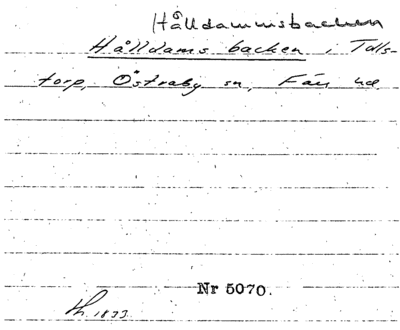 Hålldammsbacken
Hålldams backen, Tulls-
torp, Östraby sn, Färs hd.
Nr 5070.
1833